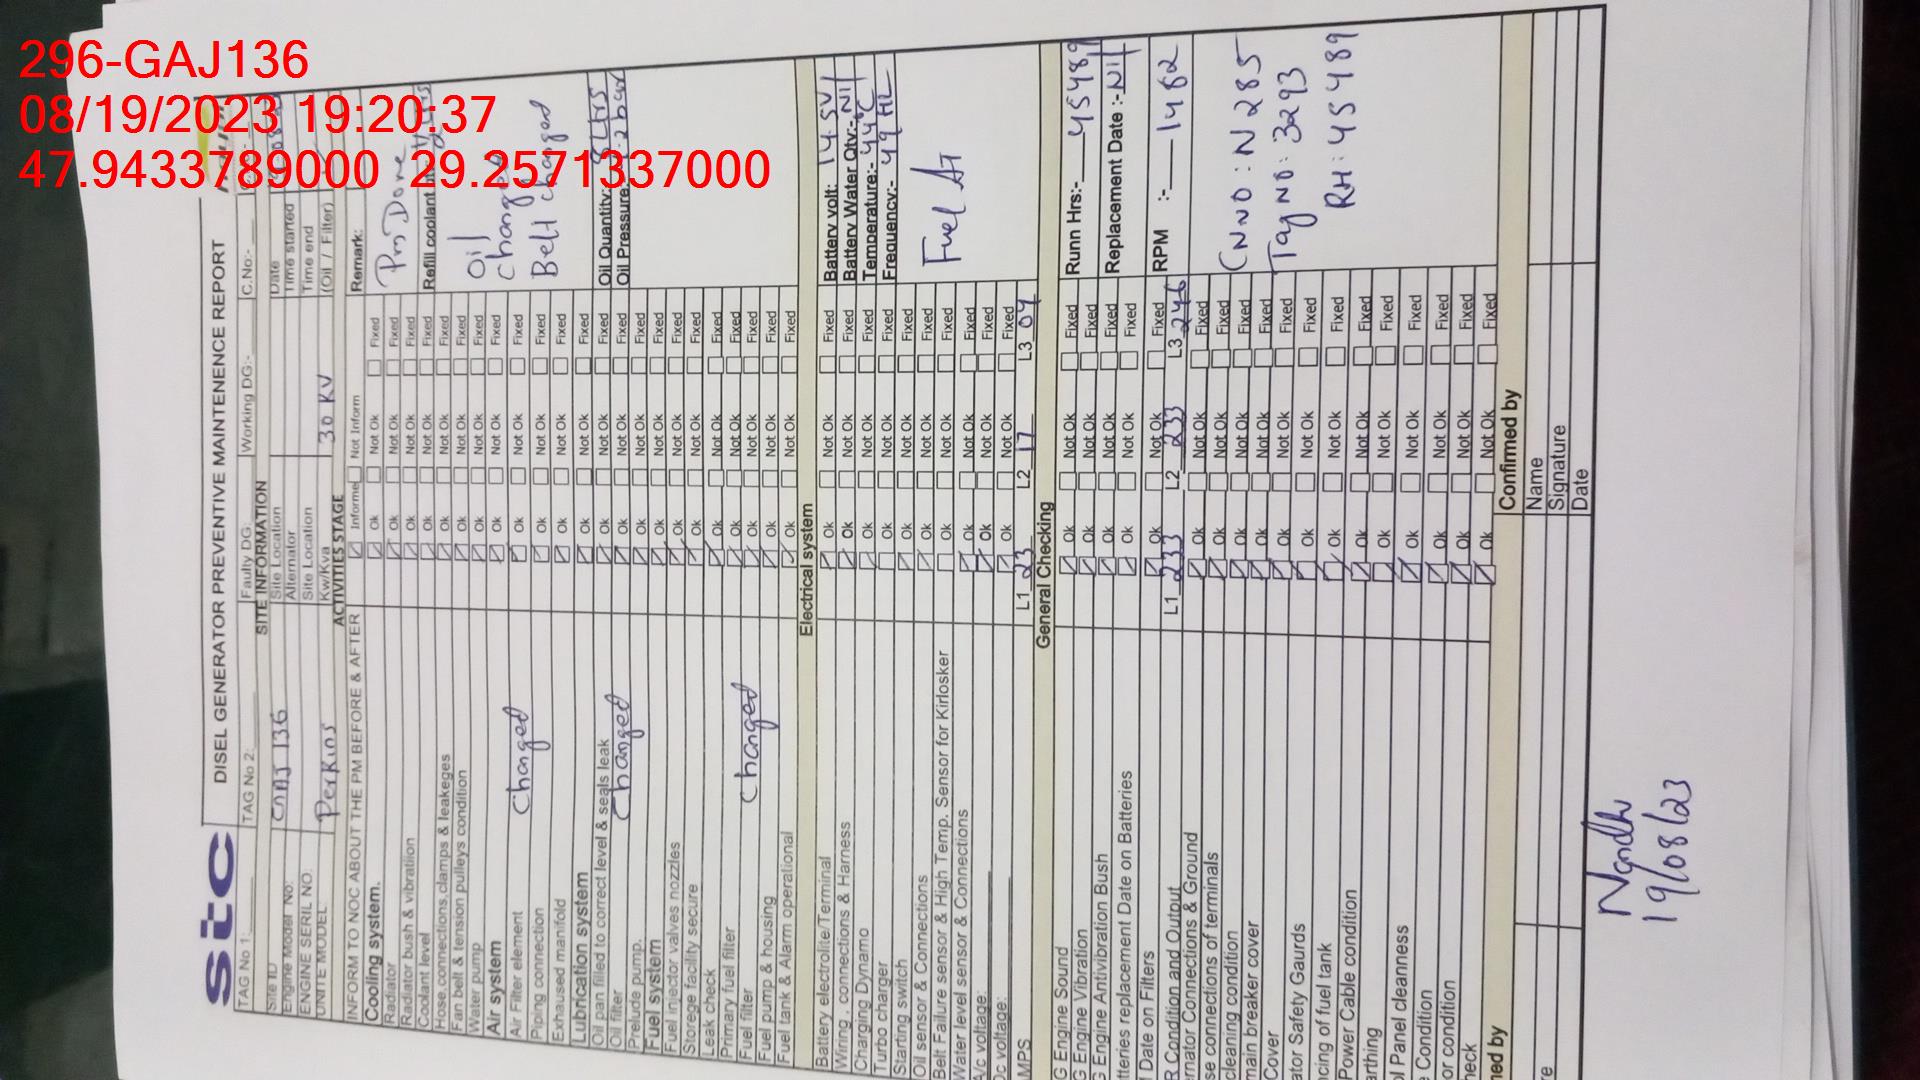 296-GAJ136
08/19/2023 19:20:37
47.9433789000 29.2571337000
stc
DISEL GENERATOR PREVENTIVE MAINTENENCE REPORT
TAG No 1: TAG No 2: Faulty DG: Working DG:- C.No:-
SITE INFORMATION
Site ID GAJ 136 Site Location Date
Engine Model No: Alternator Time started
ENGINE SERIL NO. Site Location Time end
UNITE MODEL Perkins Kw/Kva 30 KV (Oil / Filter)
ACTIVITIES STAGE
INFORM TO NOC ABOUT THE PM BEFORE & AFTER Informe Not Inform Remark:
Cooling system. Ok Not Ok Fixed
Radiator Ok Not Ok Fixed Pm Done
Radiator bush & vibratiion Ok Not Ok Fixed
Coolant level Ok Not Ok Fixed Refill coolant
Hose,connections,clamps & leakeges Ok Not Ok Fixed
Fan belt & tension pulleys condition Ok Not Ok Fixed
Water pump Ok Not Ok Fixed Oil
Air system Ok Not Ok Fixed changed
Air Filter element Changed Ok Not Ok Fixed
Piping connection Ok Not Ok Fixed Belt changed
Exhaused manifold Ok Not Ok Fixed
Lubrication system Ok Not Ok Fixed
Oil pan filled to correct level & seals leak Ok Not Ok Fixed Oil Quantity: 8 Ltrs
Oil filter Changed Ok Not Ok Fixed Oil Pressure: 4.2 bar
Prelude pump. Ok Not Ok Fixed
Fuel system Ok Not Ok Fixed
Fuel injector valves nozzles Ok Not Ok Fixed
Storege facility secure Ok Not Ok Fixed
Leak check Ok Not Ok Fixed
Primary fuel filter Ok Not Ok Fixed
Fuel filter Changed Ok Not Ok Fixed
Fuel pump & housing Ok Not Ok Fixed
Fuel tank & Alarm operational Ok Not Ok Fixed
Electrical system
Battery electrolite/Terminal Ok Not Ok Fixed Battery volt: 14.5V
Wiring , connections & Harness Ok Not Ok Fixed Battery Water Qty:- Nil
Charging Dynamo Ok Not Ok Fixed Temperature:- 44°C
Turbo charger Ok Not Ok Fixed Frequency:- 49 HZ
Starting switch Ok Not Ok Fixed
Oil sensor & Connections Ok Not Ok Fixed
Belt Failure sensor & High Temp. Sensor for Kirlosker Ok Not Ok Fixed Fuel
Water level sensor & Connections Ok Not Ok Fixed
A/c voltage: Ok Not Ok Fixed
Dc voltage: Ok Not Ok Fixed
MPS L1 23 L2 17 L3 04
General Checking
G Engine Sound Ok Not Ok Fixed Runn Hrs:- 45489
G Engine Vibration Ok Not Ok Fixed
G Engine Antivibration Bush Ok Not Ok Fixed Replacement Date :- Nil
tteries replacement Date on Batteries Ok Not Ok Fixed
l Date on Filters Ok Not Ok Fixed RPM :- 1482
R Condition and Output L1 233 L2 233 L3 246
rnator Connections & Ground Ok Not Ok Fixed
se connections of terminals Ok Not Ok Fixed
cleaning condition Ok Not Ok Fixed CNNO : N 285
main breaker cover Ok Not Ok Fixed
Cover Ok Not Ok Fixed Tag NO : 3293
ator Safety Gaurds Ok Not Ok Fixed
ncing of fuel tank Ok Not Ok Fixed RH : 45489
Power Cable condition Ok Not Ok Fixed
arthing Ok Not Ok Fixed
ol Panel cleanness Ok Not Ok Fixed
e Condition Ok Not Ok Fixed
or condition Ok Not Ok Fixed
heck Ok Not Ok Fixed
med by Confirmed by
Name
Signature
re Date
Nandhu
19/08/23